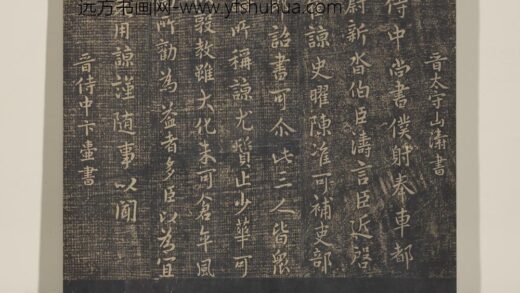 远方书画网-www.yfshuhua.com
晉太守山濤書
侍中尚書僕射奉車都
尉新沓伯臣濤言臣近啓
諒史曜陳淮可補吏部
詔書可尒此三人皆衆
所稱諒尤質止少華可
敦教雖大化未可倉卒風
所勸為益者多臣以為宜
用諒謹隨事以聞
晉侍中卞壼書